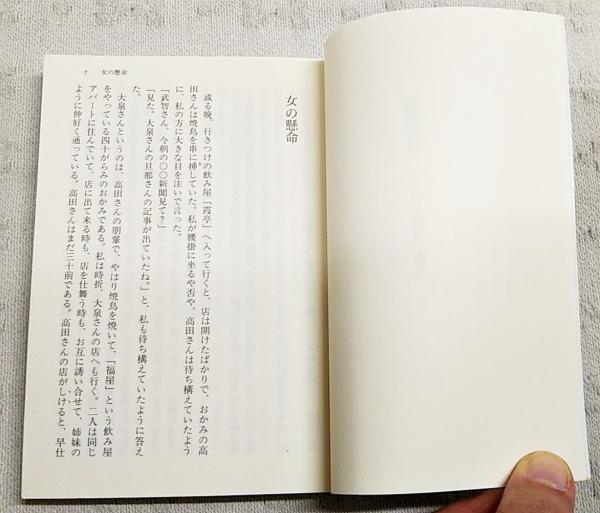 7　女の懸命
女の懸命
或る晩、行きつけの飲み屋「霞亭」へ入って行くと、店は開けたばかりで、おかみの高
田さんは焼鳥を串に挿していた。私が腰掛に坐るや否や、高田さんは待ち構えていたよう
に、私の方に大きな目を注いで言った。
「武智さん、今朝の〇〇新聞見て?」
「見た。大泉さんの旦那さんの記事が出ていたね。」と、私も待ち構えていたように答え
た。
大泉さんというのは、高田さんの朋輩で、やはり焼鳥を焼いて、「福屋」という飲み屋
をやっている四十がらみのおかみである。私は時折、大泉さんの店へも行く。二人は同じ
アパートに住んでいて、店に出て来る時も、店を仕舞う時も、お互に誘い合せて、姉妹の
ように仲好く通っている。高田さんはまだ三十前である。高田さんの店がしけると、早仕